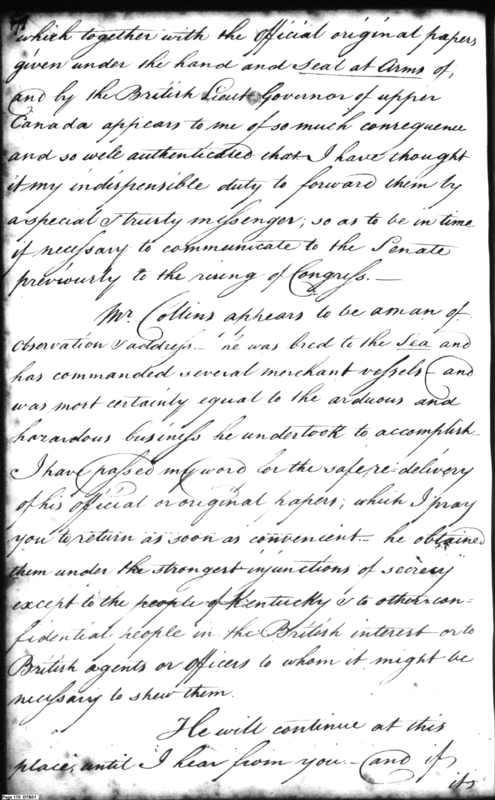 which together with the Official original papers
given under the hand and Seal at Arms of,
and by the British Lieut Governor of upper
Canada appears to me of so much consequence
and so well authenticated that I have thought
it my indispensible duty to forward them by
a special & trusty messenger; so as to be in time
if necessary to communicate to the Senate
previously to the rising of Congress.—
Mr. Collins appears to be a man of
observation & address— he was bred to the Sea and
has commanded several merchant vessels— and
was most certainly equal to the arduous and
hazardous business he undertook to accomplish—
I have passed my word for the safe re-delivery
of his official or original papers; which I pray
you to return as soon as convenient— he obtained
them under the strongest injunctions of secrecy
except to the people of Kentucky & to other con-
fidential people in the British interest or to
British agents or officers to whom it might be
necessary to shew them.
He will continue at this
place, until I hear from you.— and if
its